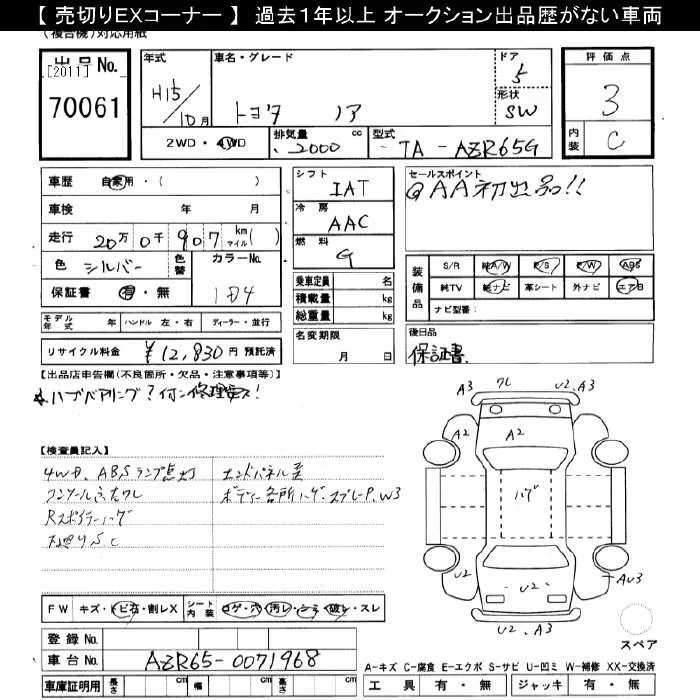 【 売切りEXコーナー 】 過去1年以上 オークション出品歴がない車両
(複合機)対応用紙
出品No.
[2011]
70061
年式
H15/10月
車名・グレード
トヨタ ノア
ドア
5
形状
SW
2WD・4WD
排気量 2000 cc
型式 TA - AZR65G
評価点
3
内装 C
車歴 自家用・( )
車検 年 月
走行 20万0千907 km マイル( )
色 シルバー 色替 カラーNo.
1D4
保証書 有・無
モデル年式 年 ハンドル 左・右 ディーラー・並行
リサイクル料金 ¥12,830円 預託済
シフト
IAT
冷房
AAC
燃料
G
乗車定員 名
積載量 kg
総重量 kg
名変期限
月 日
セールスポイント
QAA初出品!!
装備品
S/R 純A/W P/S P/W ABS
純TV 純ナビ 革シート 外ナビ エアB
ナビ型番:
後日品
保証書
【出品店申告欄(不良箇所・欠品・注意事項等)】
ハブベアリング?
【検査員記入】
4WD、ABSランプ点灯
コンソールふたワレ
Rスポイラーハゲ
下廻りS C
エンドパネル歪
ボディー各所ハゲ、スプレーP、W3
FW キズ・トビ石・割レX
シート内装 コゲ・穴・汚レ・シミ・破レ・スレ
登録No.
車台No. AZR65-0071968
車庫証明用 長さ cm 幅 cm 高さ cm
A3 ワレ U2、A3
A2 A2 A2
ハゲ
U2 U2 AU3
U2、A3
スペア
A-キズ C-腐食 E-エクボ S-サビ U-凹ミ W-補修 XX-交換済
工具 有・無 ジャッキ 有・無